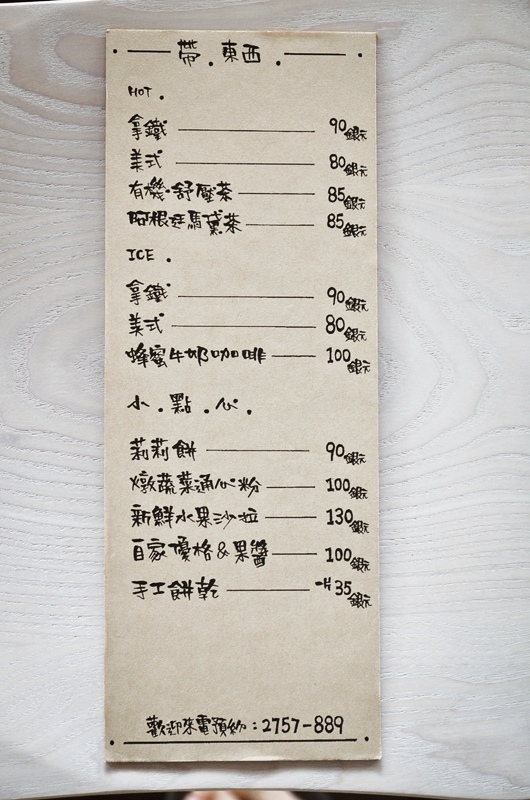 帶.東西.
HOT.
拿鐵 90銀元
美式 80銀元
有機·舒壓茶 85銀元
阿根廷馬黛茶 85銀元
ICE.
拿鐵 90銀元
美式 80銀元
蜂蜜牛奶咖啡 100銀元
小.點.心.
莉莉餅 90銀元
燉蔬菜通心粉 100銀元
新鮮水果沙拉 130銀元
自家優格&果醬 100銀元
手工餅乾 一片35銀元
歡迎來電預約:2757-889